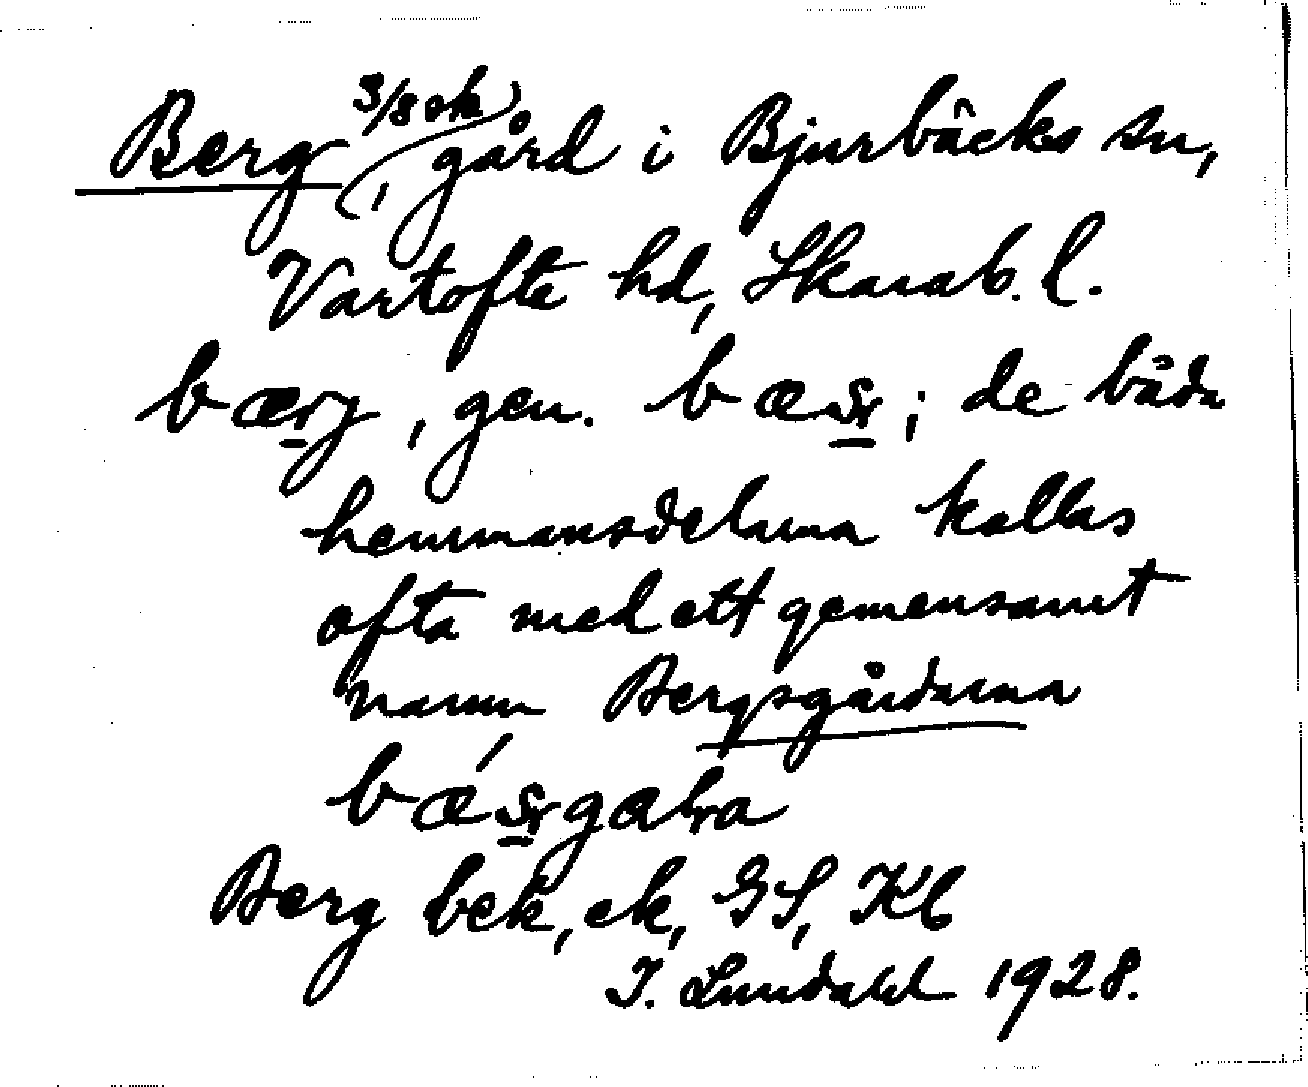 Berg (3/8 ok), gård i Bjurbäcks sn,
Vartofta hd, Skarab. l.
bærj, gen. bæsr; de båda
hemmansdelarna kallas
ofta med ett gemensamt
namn Bergsgårdarna
bǽsrgaɫra
Berg bek, ek, GS, Kb
I. Lundahl 1928.